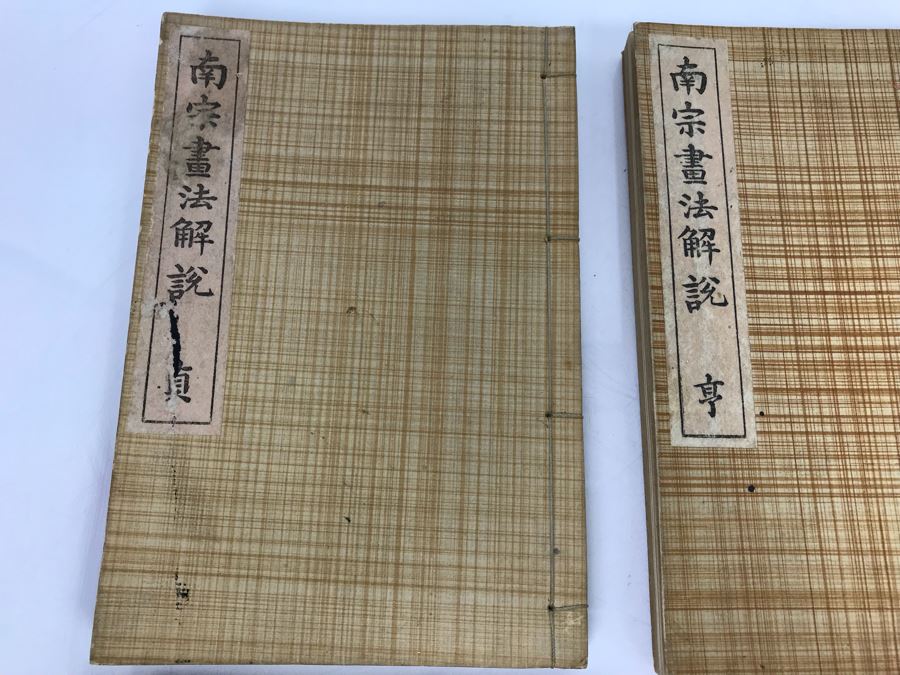 南宗畫法解說 貞
南宗畫法解說 亨